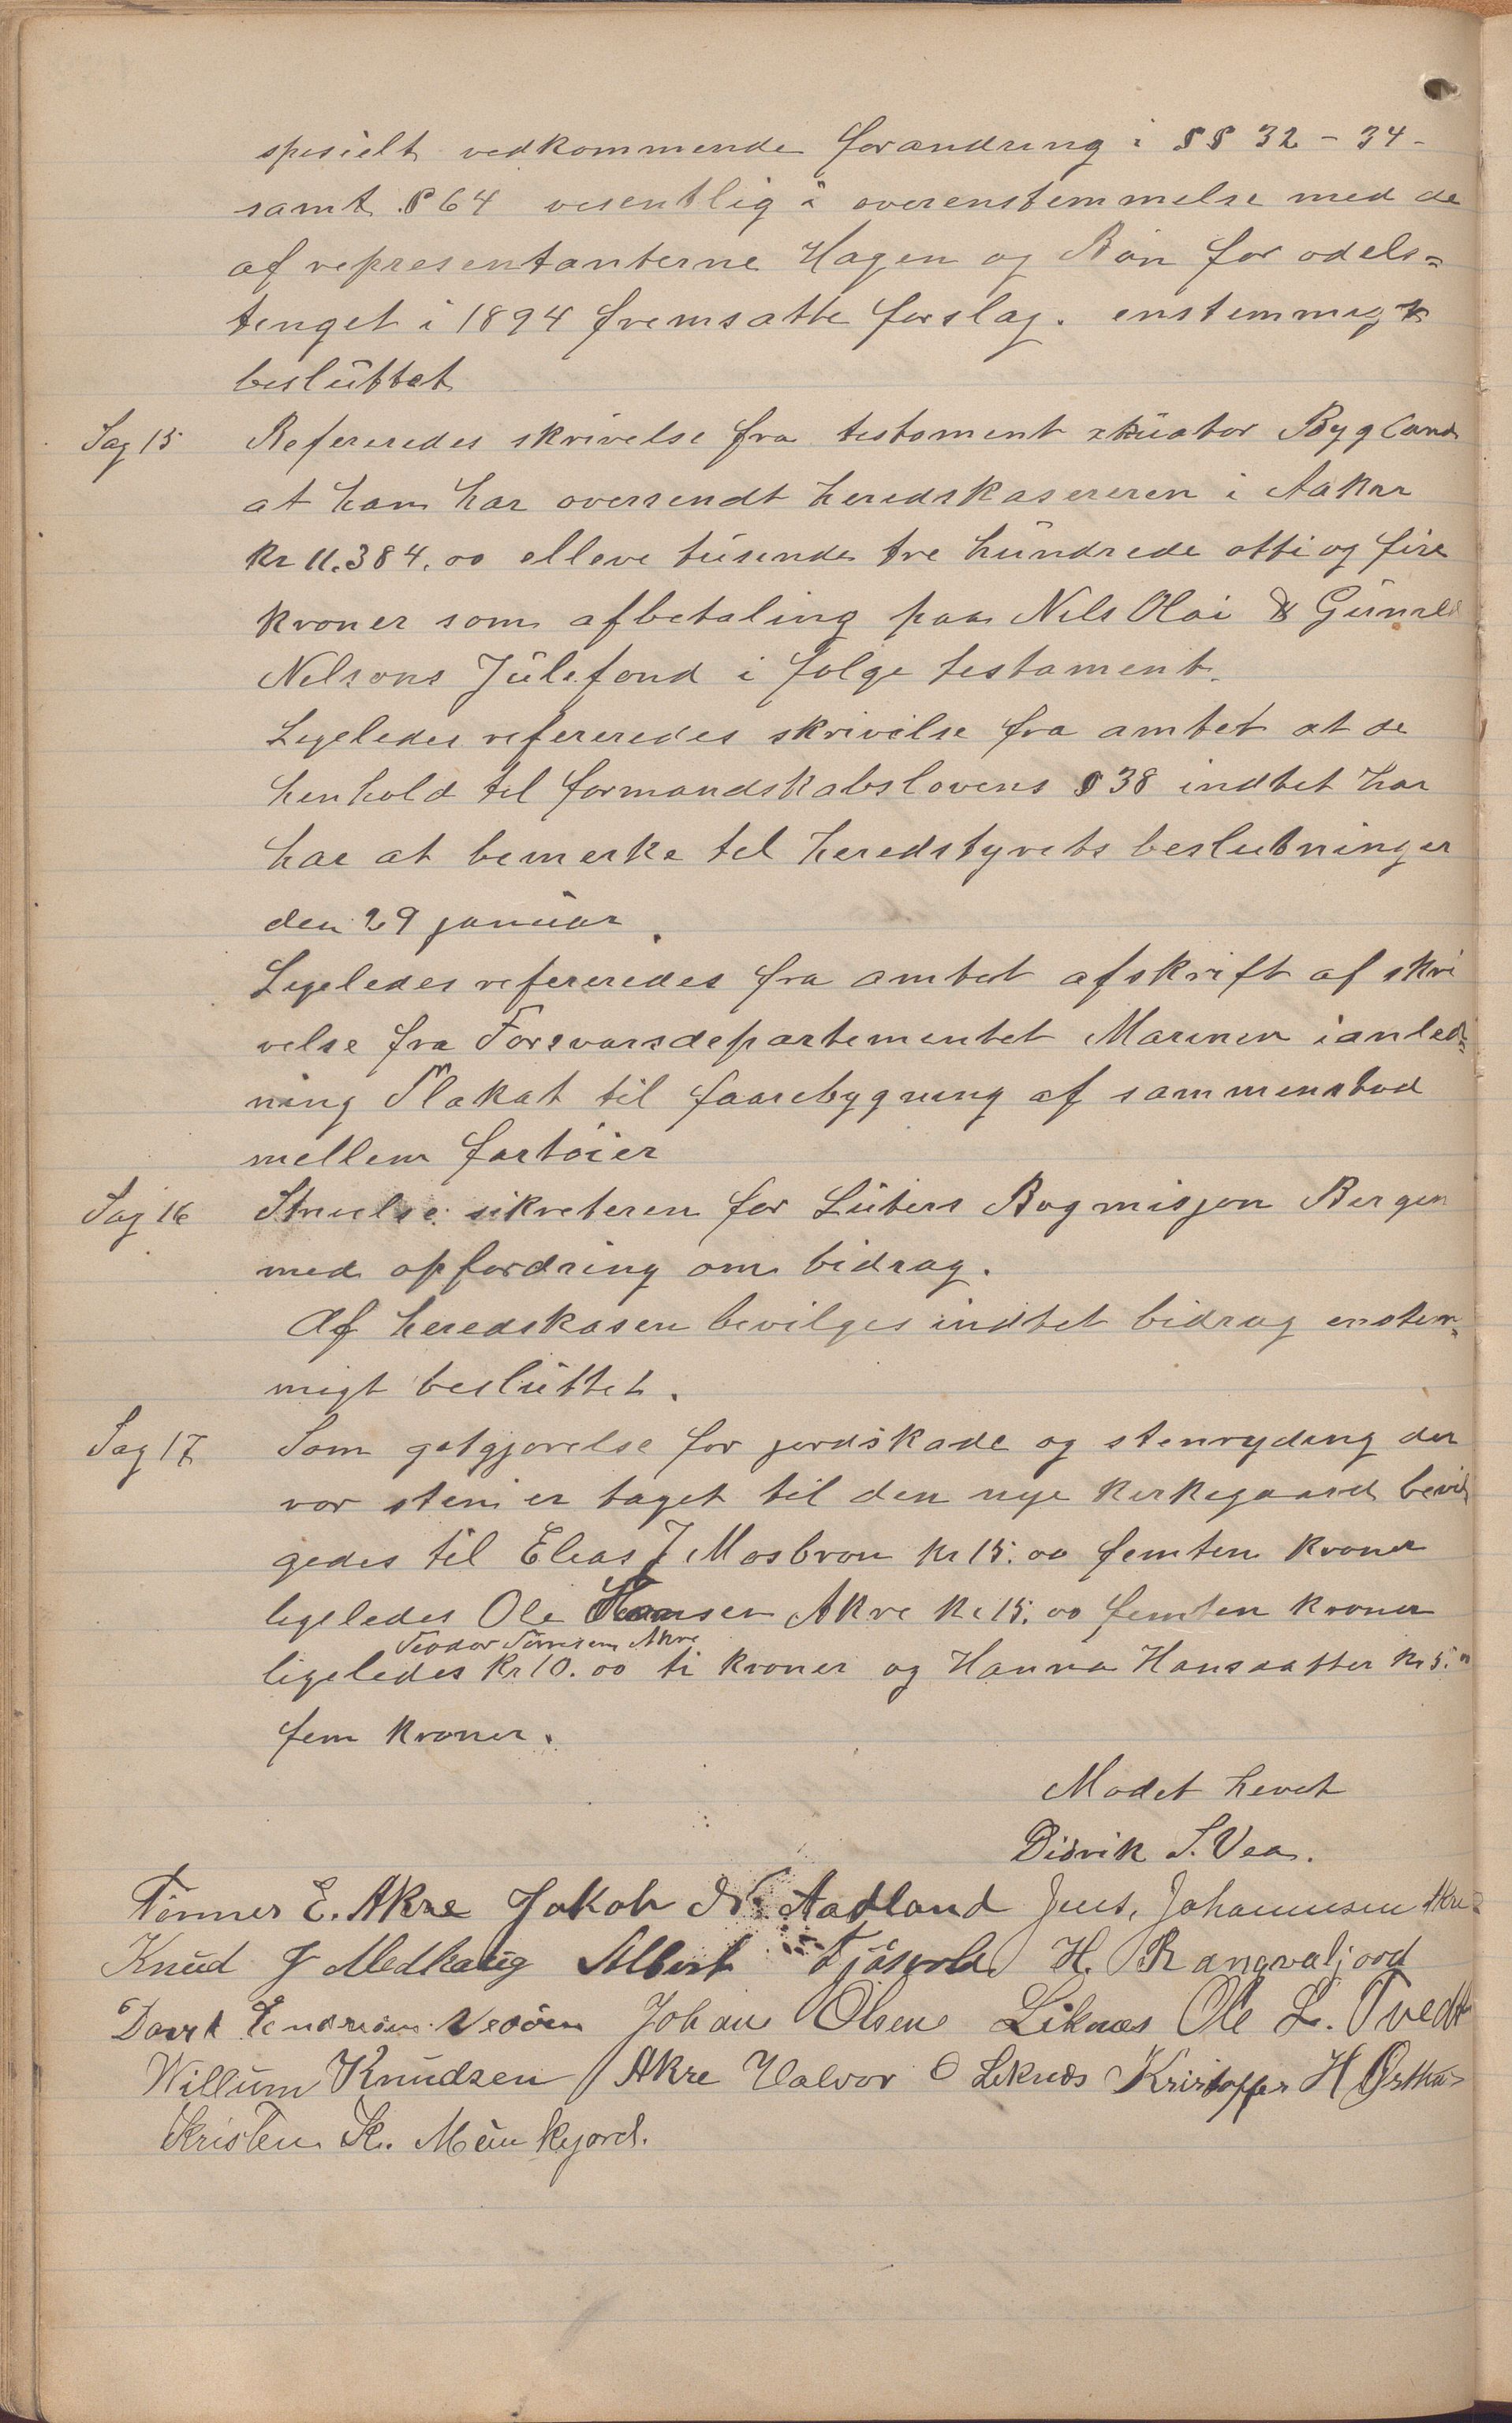 spesielt vedkommende forandring i §§ 32 - 34 -
samt § 64 vesentlig i overenstemmelse med de
af representanterne Hagen og Bön for odels=
tinget i 1894 fremsatte forslag. enstemmigt
besluttet
Sag 15 Refereredes skrivelse fra testament Bygland
at han har oversendt heredskasereren i Aakra
kr 11.384.00 elleve tusende tre hundrede otti og fire
kroner som afbetaling paa Nels Olai & Gunild
Nelsons Julefond i følge testament.
Ligeledes refereredes skrivelse fra amtet at de
henhold til formandskabslovens § 38 indtet har
har at bemerke til heredstyrets beslutninger
den 29 januar.
Ligeledes refereredes fra amtet afskrift af skri
velse fra Forsvarsdepartementet Marinen i anled=
ning Plakat til faarebygning af sammenstød
mellem fartöier
Sag 16 sikreteren for Luters Bogmisjon Bergen
med opfordring om bidrag.
Af heredskasen bevilges indtet bidrag enstem=
migt besluttet.
Sag 17 Som gotgjørelse for jordskade og stenryding der
vor sten er taget til den nye kirkegaard bevil
gedes til Elias J Mosbron kr 15.00 femten kroner
ligeledes Ole Hansen Akre kr 15.00 femten kroner
Teodor Tönnesen Akre
ligeledes kr 10.00 ti kroner og Hanna Hansdatter kr 5.00
fem kroner.
Mødet hevet
Didrik S. Vea.
Tönnes E. Akre Jakob N. Aadland Jens. Johannesen Akre
Knud J Medhaug Albert H. Rangvaljord
David Endresen Vedöen Johan Olsen Liknes Ole L. Tvedt
Willum Knudsen Akre Halvor O Liknes Kristoffer H Østhus
Kristen K. Munkejord.